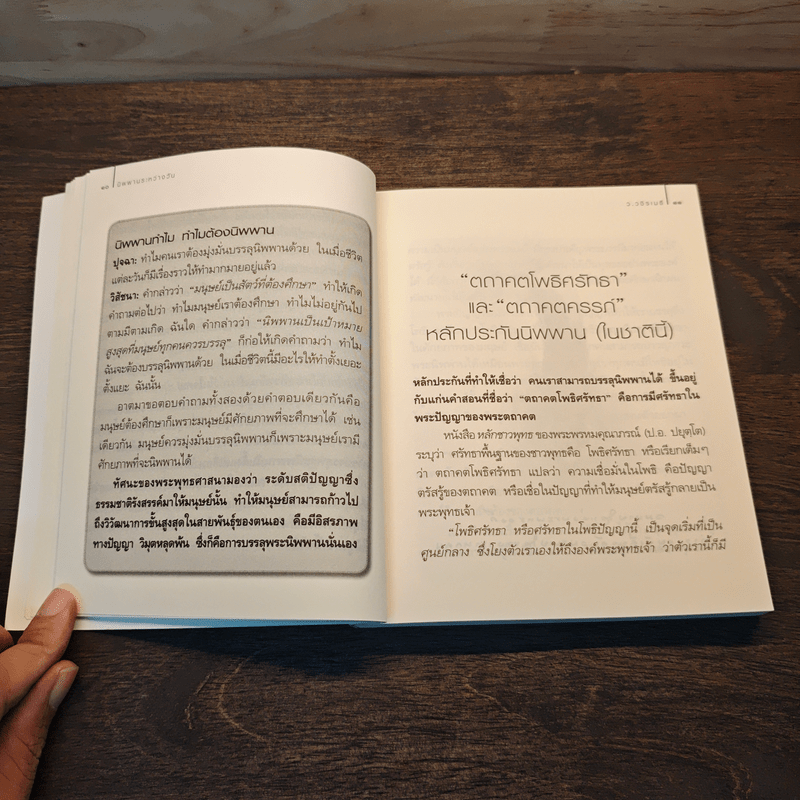 นิพพานระหว่างวัน
นิพพานทำไม ทำไมต้องนิพพาน
ปุจฉา: ทำไมคนเราต้องมุ่งมั่นบรรลุนิพพานด้วย ในเมื่อชีวิต
แต่ละวันก็มีเรื่องราวให้ทำมากมายอยู่แล้ว
วิสัชนา: คำกล่าวว่า “มนุษย์เป็นสัตว์ที่ต้องศึกษา” ทำให้เกิด
คำถามต่อไปว่า ทำไมมนุษย์เราต้องศึกษา ทำไมไม่อยู่กันไป
ตามมีตามเกิด ฉันใด คำกล่าวว่า “นิพพานเป็นเป้าหมาย
สูงสุดที่มนุษย์ทุกคนควรบรรลุ” ก็ก่อให้เกิดคำถามว่า ทำไม
ฉันจะต้องบรรลุนิพพานด้วย ในเมื่อชีวิตนี้มีอะไรให้ทำตั้งเยอะ
ตั้งแยะ ฉันนั้น
อาตมาขอตอบคำถามทั้งสองด้วยคำตอบเดียวกันคือ
มนุษย์ต้องศึกษาก็เพราะมนุษย์มีศักยภาพที่จะศึกษาได้ เช่น
เดียวกัน มนุษย์ควรมุ่งมั่นบรรลุนิพพานก็เพราะมนุษย์เรามี
ศักยภาพที่จะนิพพานได้
ทัศนะของพระพุทธศาสนามองว่า ระดับสติปัญญาซึ่ง
ธรรมชาติรังสรรค์มาให้มนุษย์นั้น ทำให้มนุษย์สามารถก้าวไป
ถึงวิวัฒนาการขั้นสูงสุดในสายพันธุ์ของตนเอง คือมีอิสรภาพ
ทางปัญญา วิมุตหลุดพ้น ซึ่งก็คือการบรรลุพระนิพพานนั่นเอง
ว.วชิรเมธี
“ตถาคตโพธิศรัทธา”
และ “ตถาคตครรภ์”
หลักประกันนิพพาน (ในชาตินี้)
หลักประกันที่ทำให้เชื่อว่า คนเราสามารถบรรลุนิพพานได้ ขึ้นอยู่
กับแก่นคำสอนที่ชื่อว่า “ตถาคตโพธิศรัทธา” คือการมีศรัทธาใน
พระปัญญาของพระตถาคต
หนังสือ หลักชาวพุทธ ของพระพรหมคุณาภรณ์ (ป.อ. ปยุตฺโต)
ระบุว่า ศรัทธาพื้นฐานของชาวพุทธคือ โพธิศรัทธา หรือเรียกเต็มๆ
ว่า ตถาคตโพธิศรัทธา แปลว่า ความเชื่อมั่นในโพธิ คือปัญญา
ตรัสรู้ของตถาคต หรือเชื่อในปัญญาที่ทำให้มนุษย์ตรัสรู้กลายเป็น
พระพุทธเจ้า
“โพธิศรัทธา หรือศรัทธาในโพธิปัญญานี้ เป็นจุดเริ่มที่เป็น
ศูนย์กลาง ซึ่งโยงตัวเราเองให้ถึงองค์พระพุทธเจ้า ว่าตัวเรานี้ก็มี